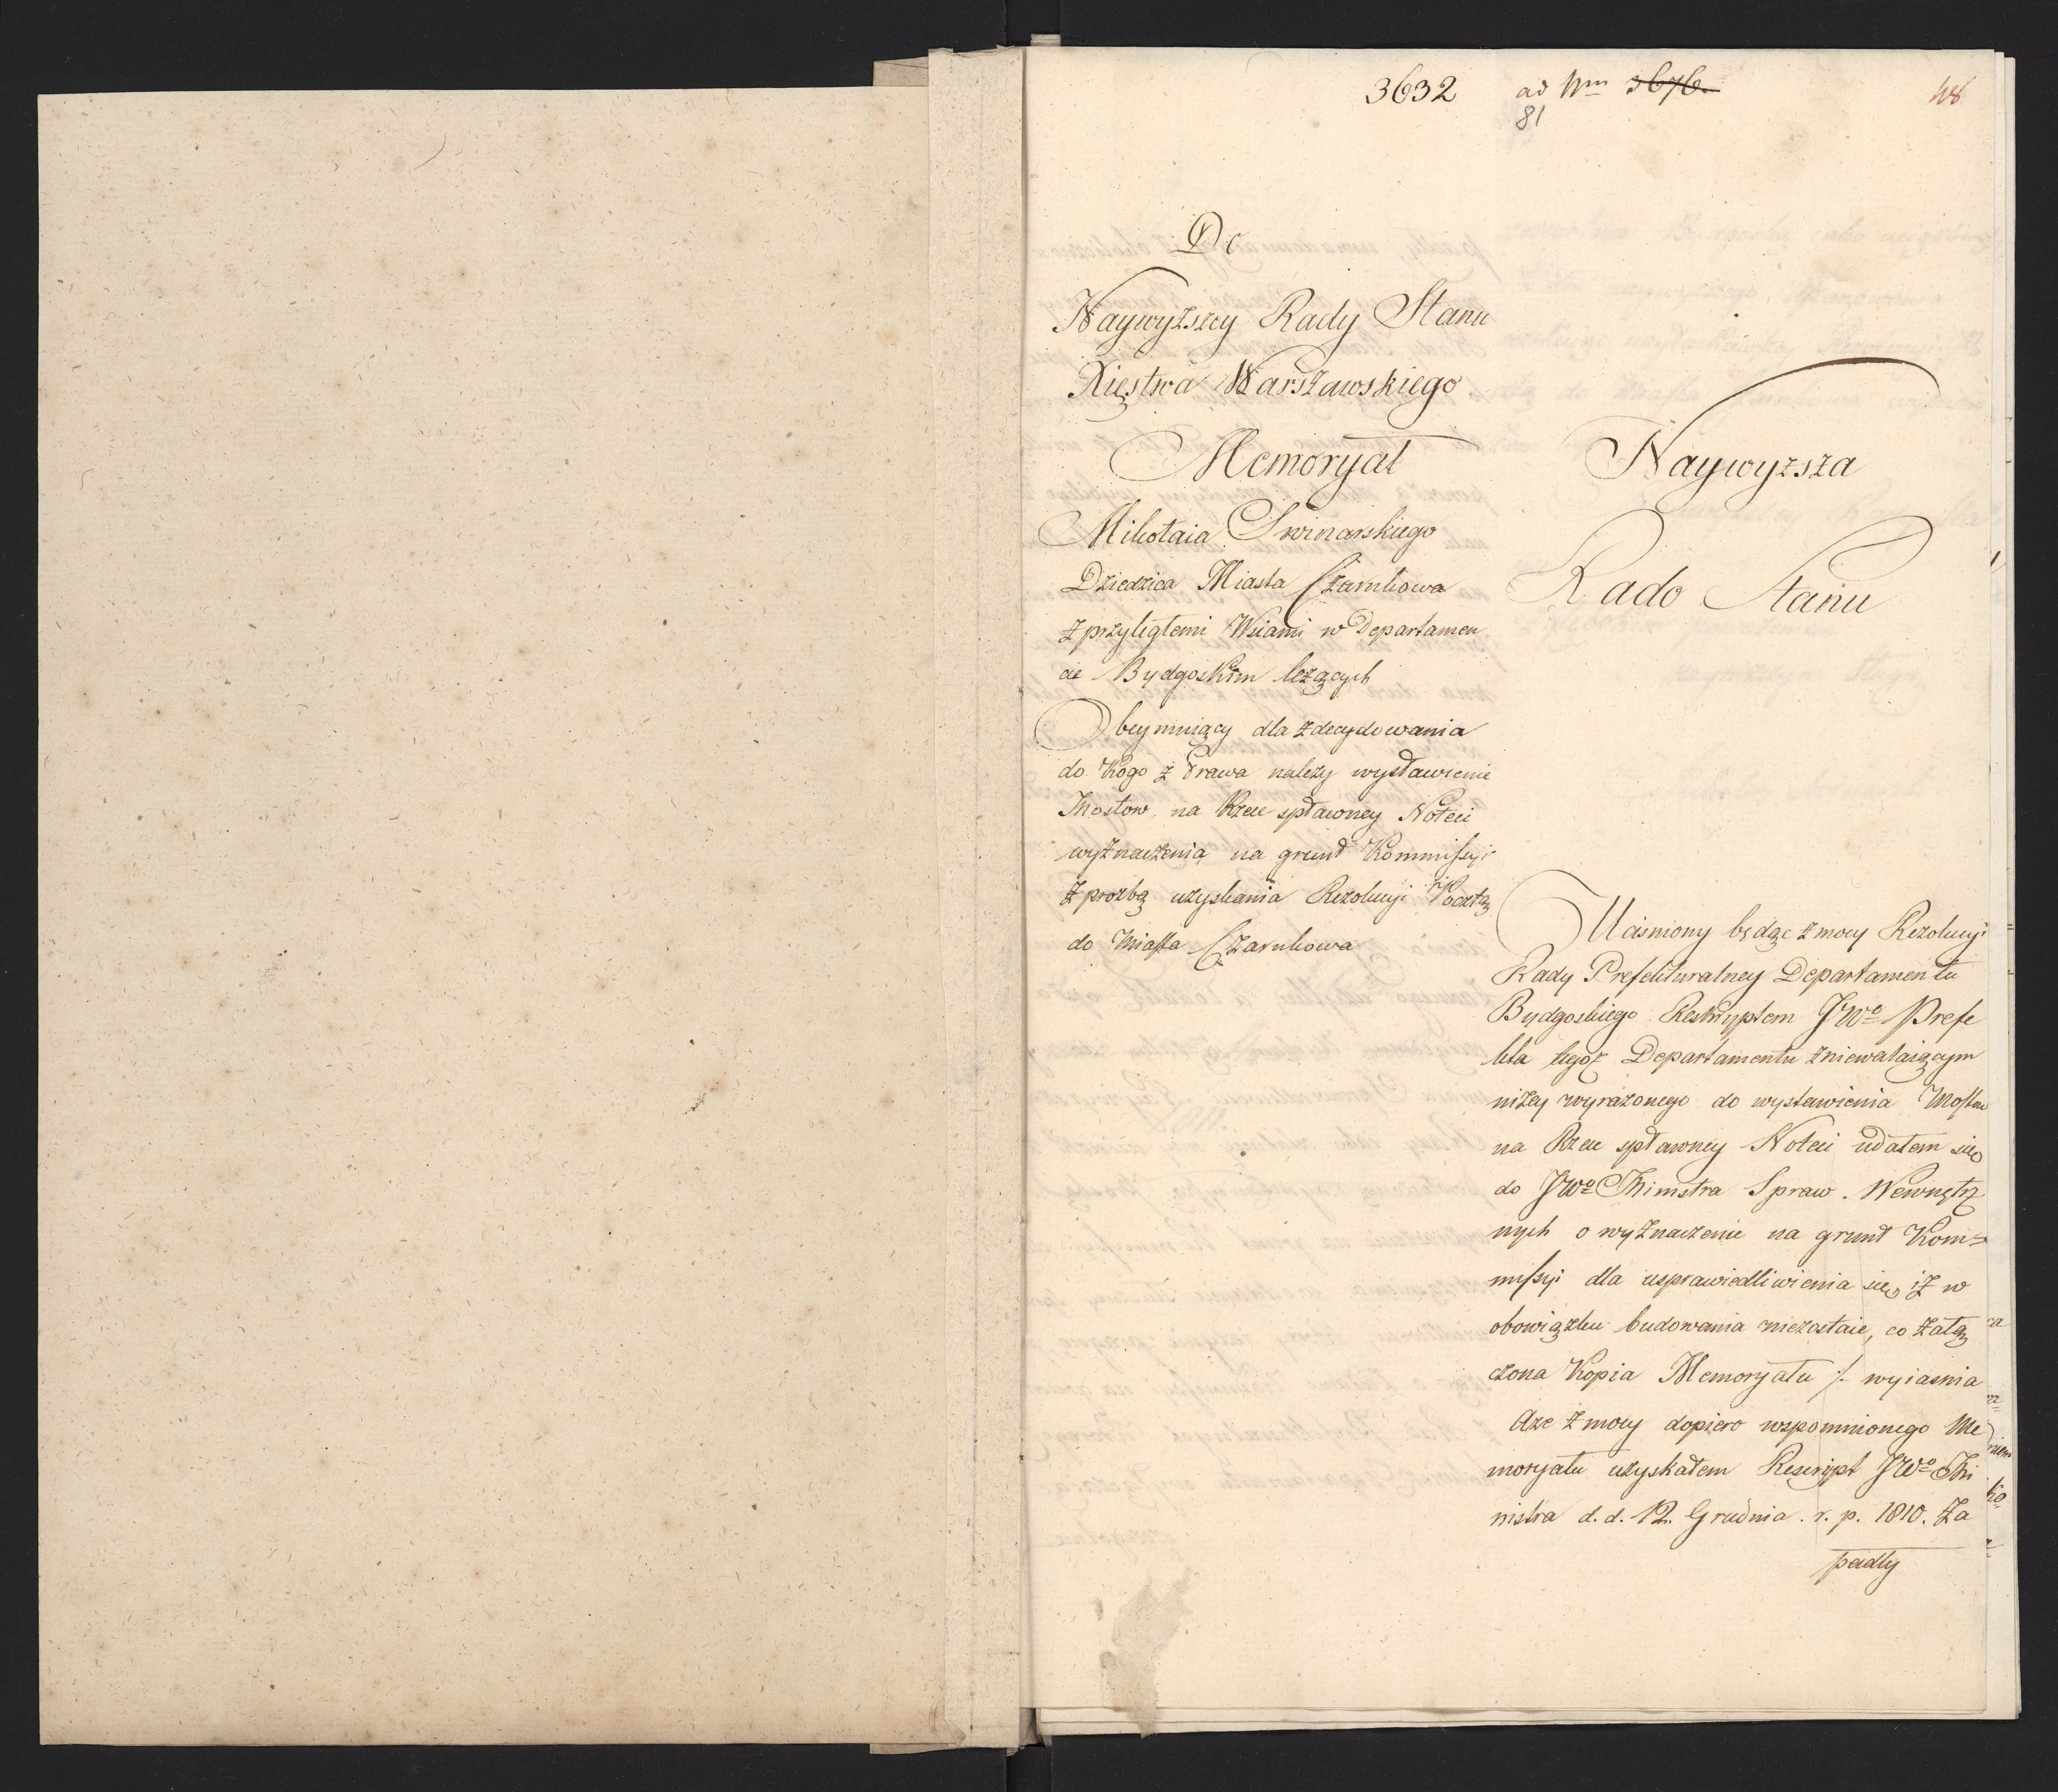 3632 ad Nrm 3676.
81
48
Do
Naywyższey Rady Stanu
Xięstwa Warszawskiego
Memoryał
Mikołaia Swinarskiego
Dziedzica Miasta Czarnkowa
z przyległemi Wsiami w Departamen
cie Bydgoskim leżących
Obeymuiący dla zdecydowania
do Kogo z Prawa należy wystawienie
Mostow na Rzece spławney Noteci
wyznaczenia na grunt Kommissyi
z prozbą uzyskania Rezolucyi Pocztą
do Miasta Czarnkowa
Naywyzsza
Rado Stanu
Uciśniony będąc z mocy Rezolucyi
Rady Prefekturalney Departamentu
Bydgoskiego Reskryptem JWo Prefe
kta tegoż Departamentu zniewalaiącym
niżey wyrażonego do wystawienia Mostow
na Rzece spławney Noteci udałem się
do JWo Ministra Spraw. Wewnętrz
nych o wyznaczenie na grunt Kom=
missyi dla usprawiedliwienia się, iż w
obowiązku budowania niezostaie, co załą
czona Kopia Memoryału ./. wyiaśnia
Aże z mocy dopiero wspomnionego Me
moryału uzyskałem Rescript JWo Mi
nistra d. d. 12. Grudnia. r. p. 1810. Za
padły